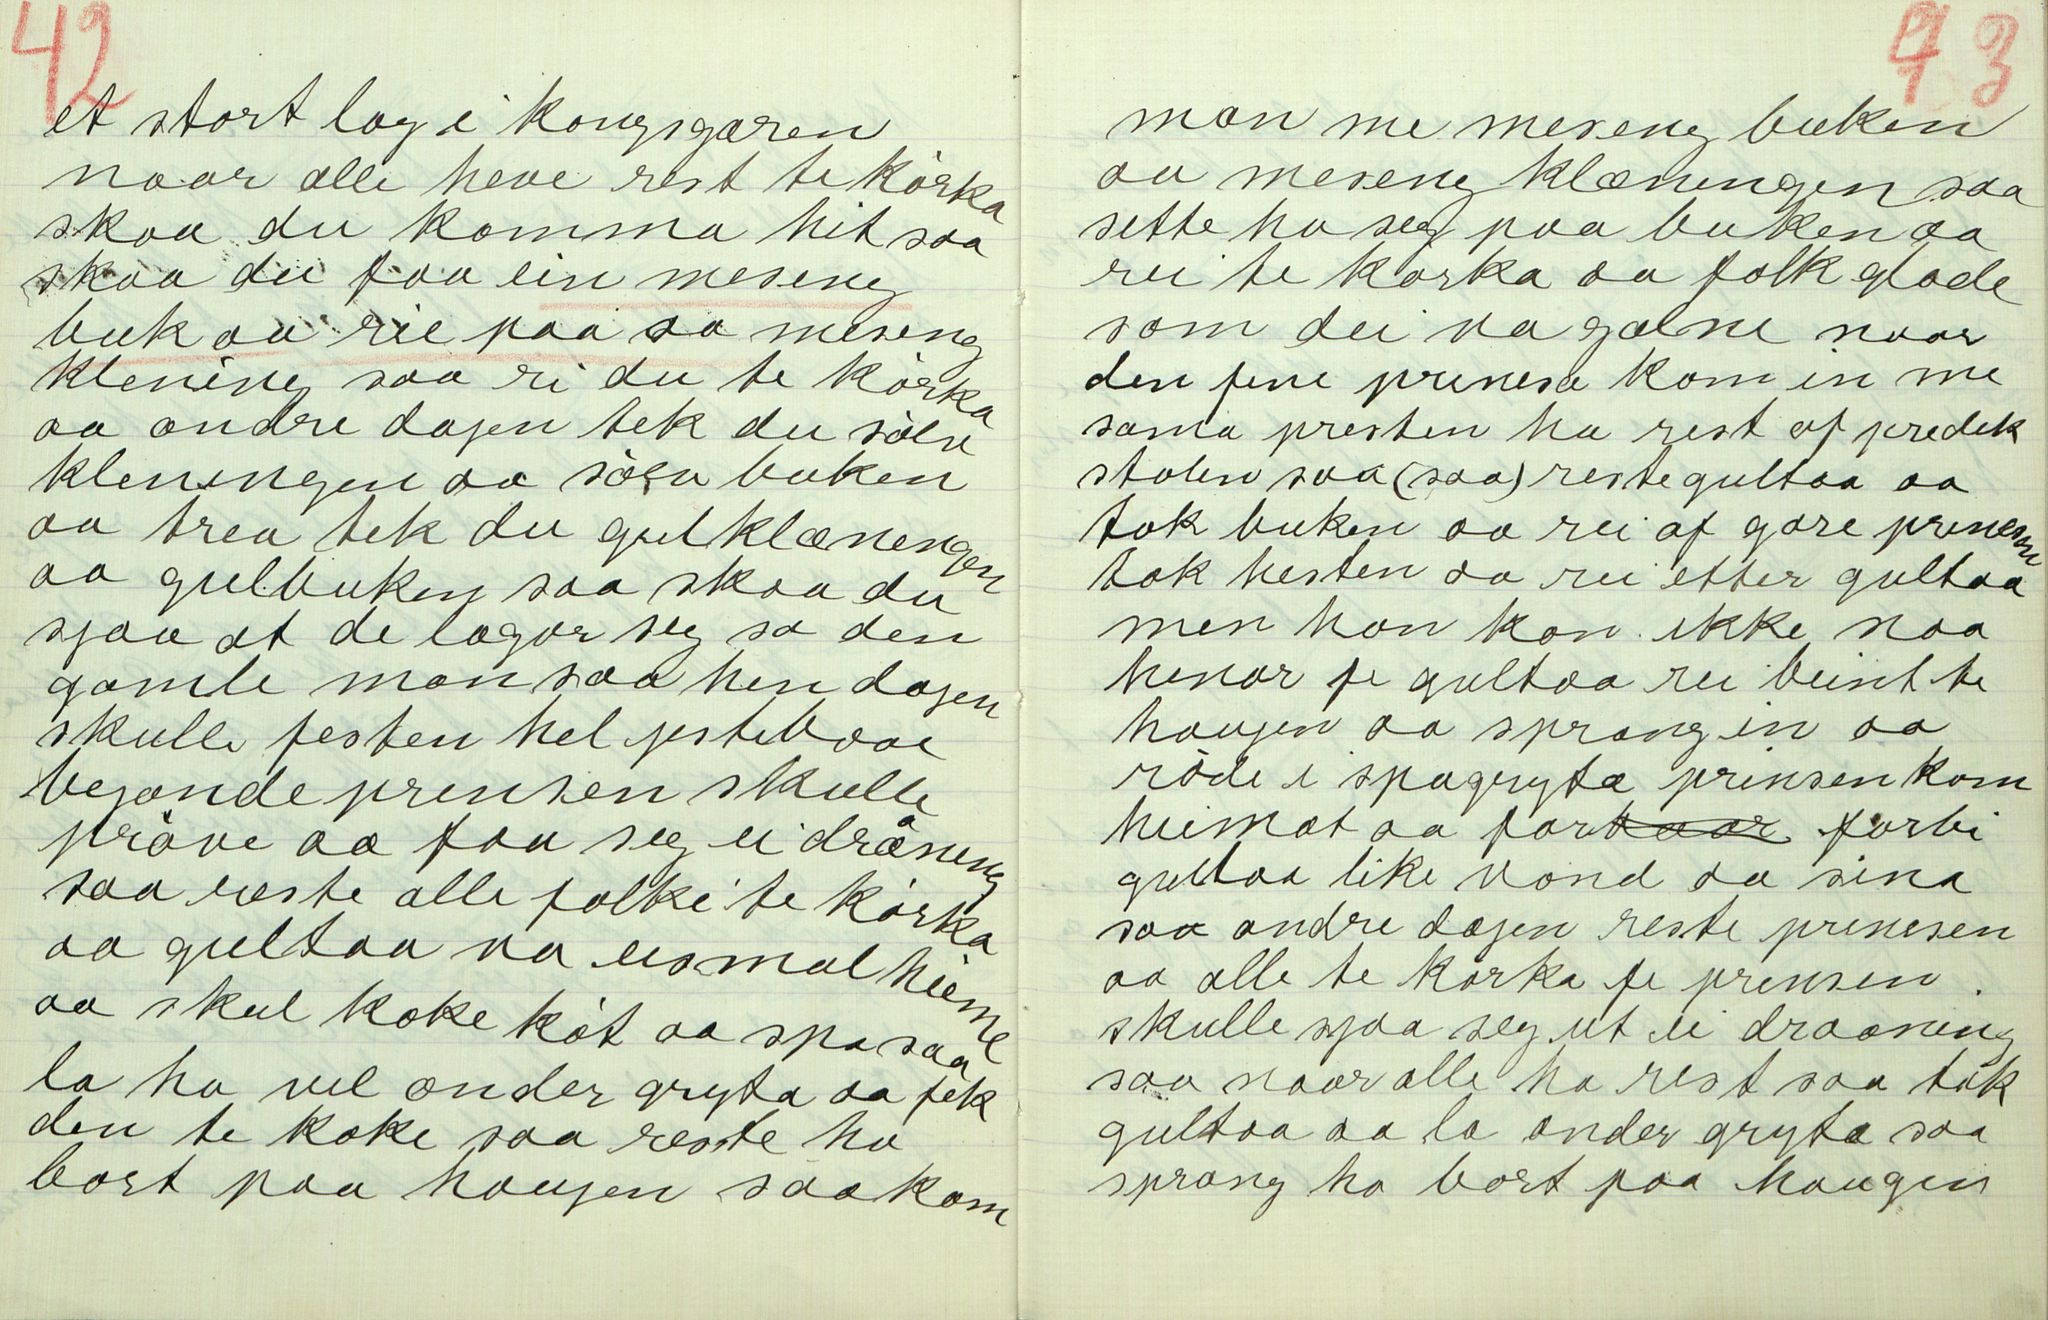 42
et stort lag i kongsgaren
naar alle heve rest te körka
skaa du komma hit saa
skaa du faa ein meseng
buk aa rie paa sa meseng
klening saa ri du te körka
aa andre dagen tek du sölv
kleningen aa sölv buken
aa trea tek du gulklæningen
aa gulbuken saa skaa du
sjaa at de lagar seg sa den
gamle man saa hen dagen
skulle festen hel jstebaae
bejande prinsen skulle
pröve aa faa seg ei dråneng
saa reste alle folke te körka
aa gultaa va eismal heime
aa skul koke köt aa spa saa
la ho vel onder gryta aa fek
den te koke saa reste ho
bort paa haugen saa kom
43
man me meseng buken
aa meseng klæningen saa
sette ho seg paa buken aa
rei te korka aa folk glade
som dei va galne naar
den fine prinesa kom in me
sama presten ha rest af predek
stolen saa (saa) reste gultaa aa
tok buken aa rei af gare prinesen
tok hesten aa rei etter gultaa
men han kan ikke naa
henar fe gultaa rei beint te
haugen aa sprang in aa
röde i spagryta prinsen kom
heimat aa for forbi
gultaa like vond aa sina
saa andre dagen reste prinesen
aa alle te korka fe prinsen
skulle sjaa seg ut ei draaneng
saa naar alle ha rest saa tok
gultaa aa la onder gryta saa
sprang ho bort paa haugen